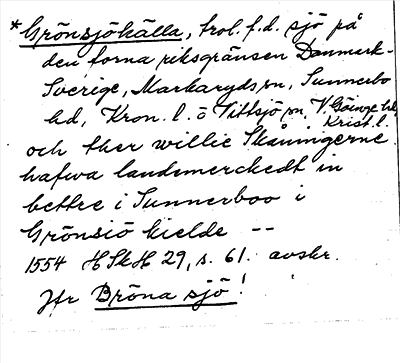 * Grönsjökälla, trol. f.d. sjö på
den forna riksgränsen Danmark-
Sverige, Markaryds sn, Sunnerbo
hd, Kron. l. o Vittsjö sn, V. Göinge hd,
Krist. l.
och ther willie Skåningerne
hafwa landemerckedt in
bettre i Sunnerboo i
Grönsiö kielde --
1554 HSkH 29, s. 61. avskr.
Jfr Bröna sjö!